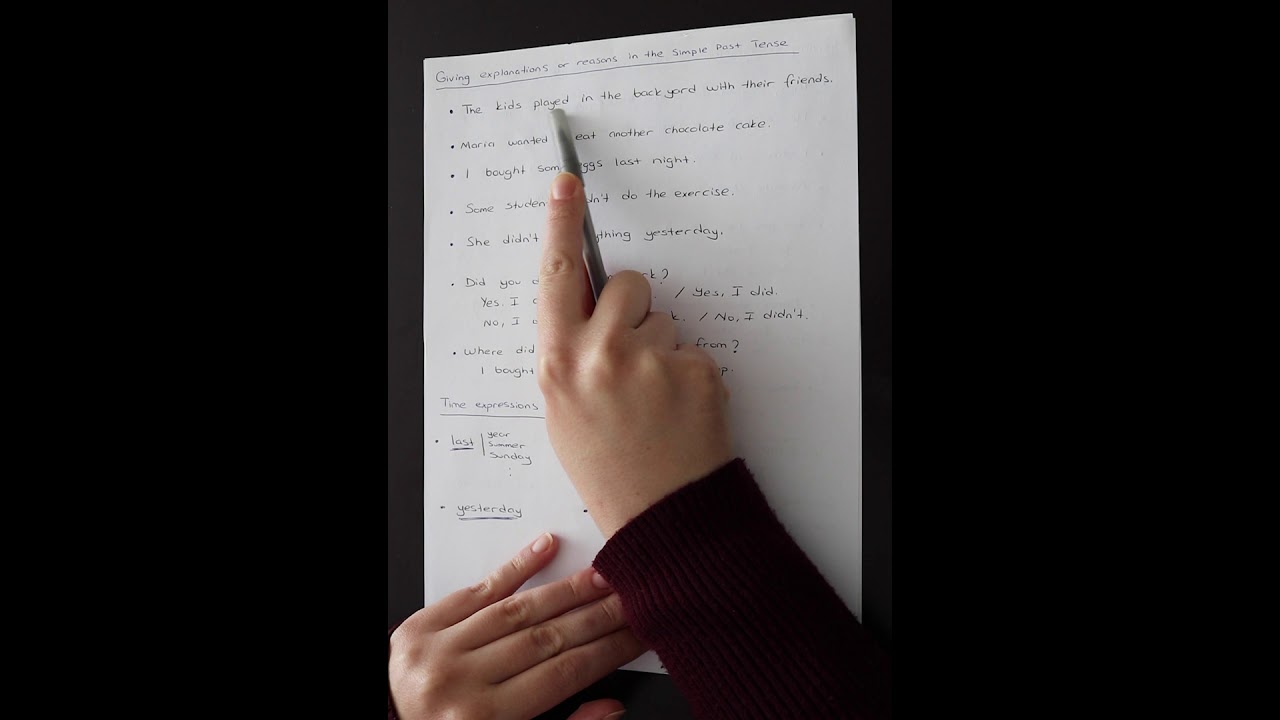 Giving explanations or reasons in the Simple Past Tense
• The kids played in the backyard with their friends.
• Maria wanted eat another chocolate cake.
• I bought last night.
• Some do the exercise.
• She didn't yesterday.
• Did you
Yes. I / Yes, I did.
No, I / No, I didn't.
• Where did from?
I bought
Time expressions
• last year
summer
Sunday
:
• yesterday